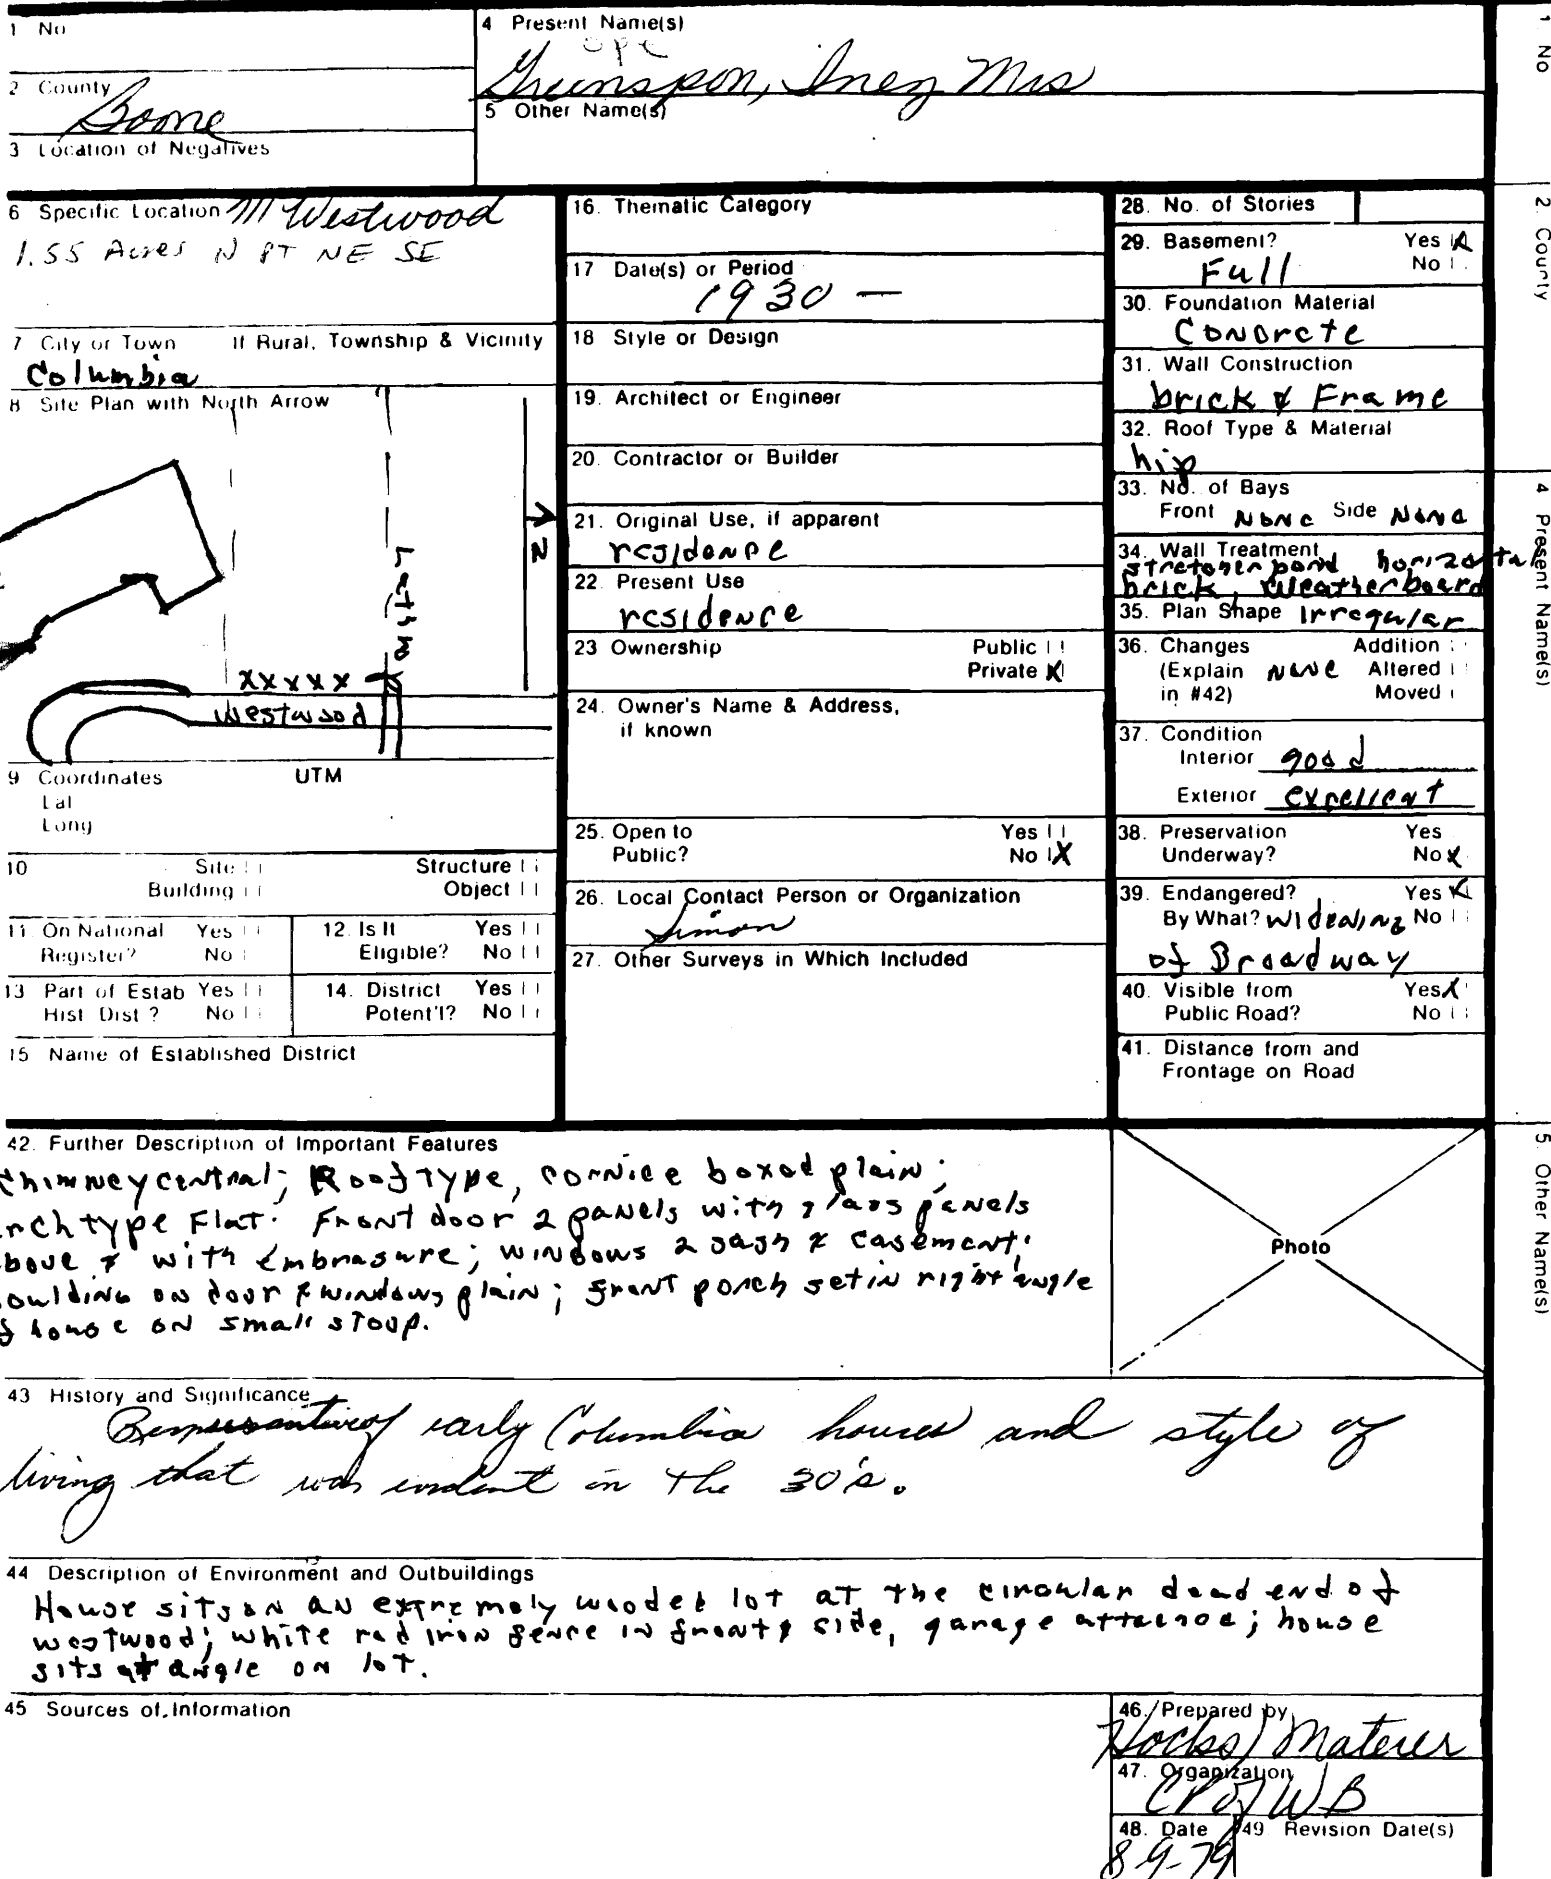 1 No
4 Present Name(s)
ope
Greenspon, Inez Mrs
2 County
Boone
5 Other Name(s)
3 Location of Negatives
6 Specific Location Westwood
1.55 Acres N PT NE SE
7 City or Town If Rural, Township & Vicinity
Columbia
8 Site Plan with North Arrow
N
xxxxx
Westwood
9 Coordinates UTM
Lat
Long
10 Site Structure
Building Object
11 On National Register? Yes No
12. Is It Eligible? Yes No
13 Part of Estab Hist Dist? Yes No
14. District Potent'l? Yes No
15 Name of Established District
16. Thematic Category
17 Date(s) or Period
1930 —
18 Style or Design
19. Architect or Engineer
20. Contractor or Builder
21. Original Use, if apparent
residence
22. Present Use
residence
23 Ownership Public
Private X
24. Owner's Name & Address,
if known
25. Open to Yes
Public? No X
26. Local Contact Person or Organization
Simon
27. Other Surveys in Which Included
28. No. of Stories
29. Basement? Yes X
Full No
30. Foundation Material
Concrete
31. Wall Construction
brick & Frame
32. Roof Type & Material
hip
33. No. of Bays
Front None Side None
34. Wall Treatment
stretcher bond horizontal
brick, weatherboard
35. Plan Shape Irregular
36. Changes Addition
(Explain None Altered
in #42) Moved
37. Condition
Interior good
Exterior excellent
38. Preservation Yes
Underway? No X
39. Endangered? Yes X
By What? widening No
of Broadway
40. Visible from Yes X
Public Road? No
41. Distance from and
Frontage on Road
42. Further Description of Important Features
Chimney central; Roof type, cornice boxed plain;
rch type Flat. Front door 2 panels with glass panels
bove & with embrasure; windows 2 sash & casement;
oulding on door & windows plain; front porch set in right angle
f house on small stoop.
Photo
43 History and Significance
early Columbia houses and style of
living that was evident in the 30's.
44 Description of Environment and Outbuildings
House sits on an extremely wooded lot at the circular dead end of
westwood; white rod iron fence in front & side, garage attached; house
sits at angle on lot.
45 Sources of Information
46. Prepared by
Hocks/Materer
47. Organization
48. Date 49. Revision Date(s)
8-9-79
1 No
2. County
4 Present Name(s)
5. Other Name(s)